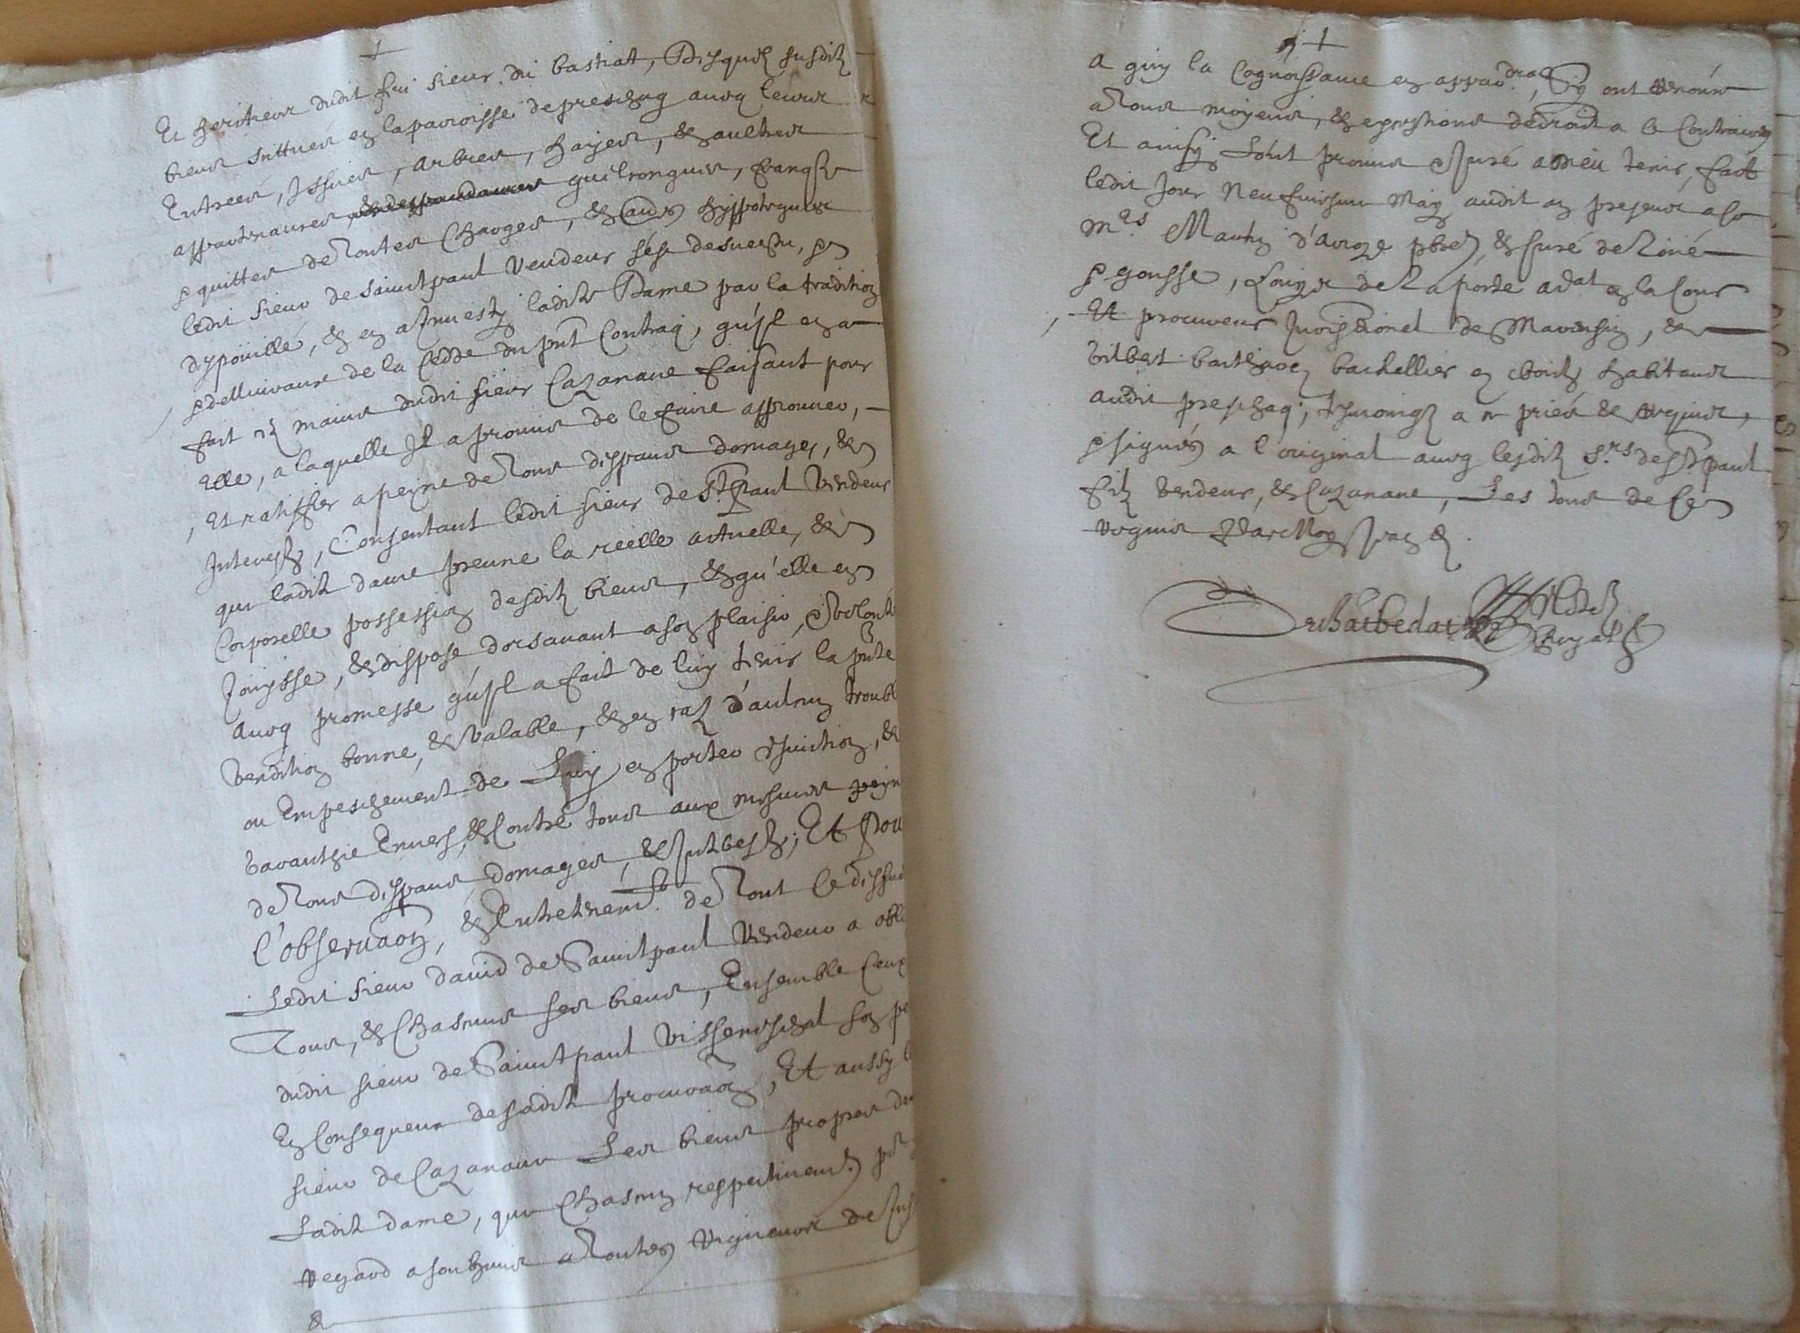 Et heritier dudit feu sieur du bastiat, Desquels susdits
biens scittués en la parroisse de preschaq avecq leurs
Entrées, Issues, arbres, hayes, & aultres
appartenances, quils longues, franqs
& quittes de toutes Charges, & hyppoteques
ledit sieur de Sainctpaul Vendeur s'est desvestu, &
despouillé, & en a Investy ladite Dame par la tradition
& dellivrance de la Cedde du pnt Contraq, qu'il en a
fait es mains dudit sieur Cazanave faisant pour
elle, a laquelle Il a promis de le faire approuver,
Et ratiffier a peyne de tous despans domages, &
Interestz, Consentant ledit sieur de St Paul Vendeur
que ladite dame prenne la réelle actuelle, &
Corporelle possession desditz biens, & qu'elle en
Jouysse, & dispose doresavant a son plaisir, & volonté
avecq promesse qu'il a fait de luy tenir la pnte
vendition bonne, & valable, & en cas d'aulcun trouble
ou Empeschement de Luy en porter Esviction, &
garanthie Envers, & Contre tous aux mesmes peyn
de tous despans domages, & Interestz; Et pou
l'observaon, & Entretenemt. de Tout Ce dessus
Ledit sieur david de Sainctpaul Vendeur a obli
Tous, & Chascuns ses biens, Ensemble Ceux
dudit sieur de Sainctpaul Visseneschal son pe
En Consequence de sadite procuraon, Et aussy l
sieur de Cazanave Les biens propres de
Ladite dame, que Chascun respectivemt. po
regard a soubmis a Toutes rigueurs de Jus
&
a quy la Cognoissance en appadra, Sy ont renoncé
a Tous moyens, & exeptions de droit a ce Contraires
Et ainsy L'ont promis & juré a Dieu tenir, fait
ledit Jour Neufviesme May audit an presens a ce
mes. Martin d'Avoze pbre, & Curé de
& gousse, Louys de Laporte advat en la Cour
Et procureur Jurisdionel de Maurensin, &
Gilbert barthaoez bachellier en droitz habitans
audit preschaq, tesmoings a ce priés & requis,
& signés a l'original avecq lesditz Srs de St paul
filz vendeur, & Cazanave, Les tous de Ce
requis
Duhaibedat
Royal